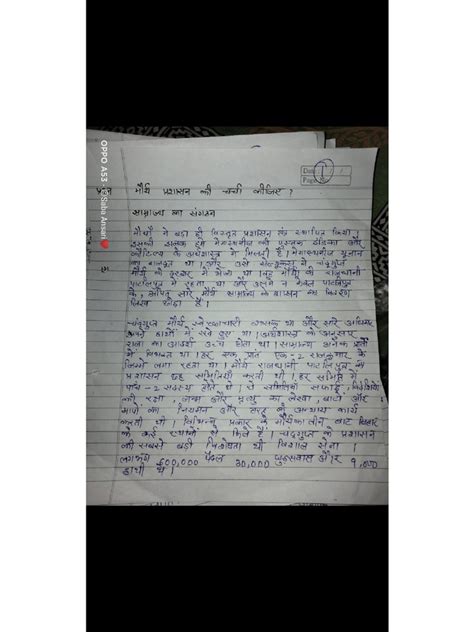 Date / /
Page
प्रश्न मौर्य प्रशासन की चर्चा कीजिए ?
साम्राज्य का संगठन
मौर्यों ने बड़ा ही विस्तृत प्रशासन तंत्र स्थापित किया।
इसकी झलक हमें मेगास्थनीज की पुस्तक इंडिका और
कौटिल्य के अर्थशास्त्र में मिलती है। मेगास्थनीज यूनान
का राजदूत था। और उसे सेल्यूकस ने चंद्रगुप्त
मौर्य के दरबार में भेजा था। वह मौर्य की राजधानी
पाटलिपुत्र में रहता था और उसने न केवल पाटलिपुत्र
के, अपितु सारे मौर्य साम्राज्य के शासन का विवरण
लिख छोड़ा है।
चंद्रगुप्त मौर्य स्वेच्छाचारी शासक था और सारे अधिकार
अपने हाथों में रखे हुए था। अर्थशास्त्र के अनुसार
राजा का आदर्श उच्च होता था। साम्राज्य अनेक प्रांतों
में विभक्त था। हर एक प्रांत एक-2 राजकुमार के
जिम्मे लगा रहता था। मौर्य राजधानी पाटलिपुत्र का
प्रशासन छह समितियाँ करती थी। हर समिति में
पांच-2 सदस्य होते थे। ये समितियाँ सफाई, विदेशियों
की रक्षा, जन्म और मृत्यु का लेखा, बाटों और
मापों का नियमन और इसी तरह के अन्यान्य कार्य
करती थी। विभिन्न प्रकार के मौर्यकालीन बाट बिहार
के कई स्थानों से मिले हैं। चंद्रगुप्त के प्रशासन
की सबसे बड़ी विशेषता थी विशाल सेना।
लगभग 600,000 पैदल 30,000 घुड़सवार और 9,000
हाथी थे।
OPPO A53
Saba Ansari